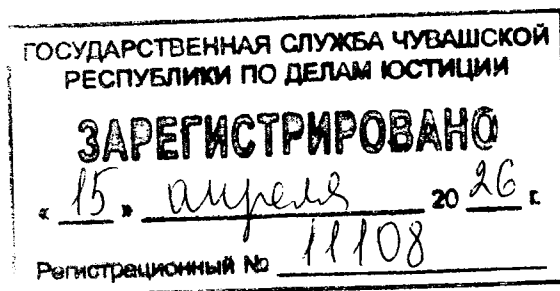 ГОСУДАРСТВЕННАЯ СЛУЖБА ЧУВАШСКОЙ
РЕСПУБЛИКИ ПО ДЕЛАМ ЮСТИЦИИ
ЗАРЕГИСТРИРОВАНО
« 15 » апреля 20 26 г.
Регистрационный № 11108